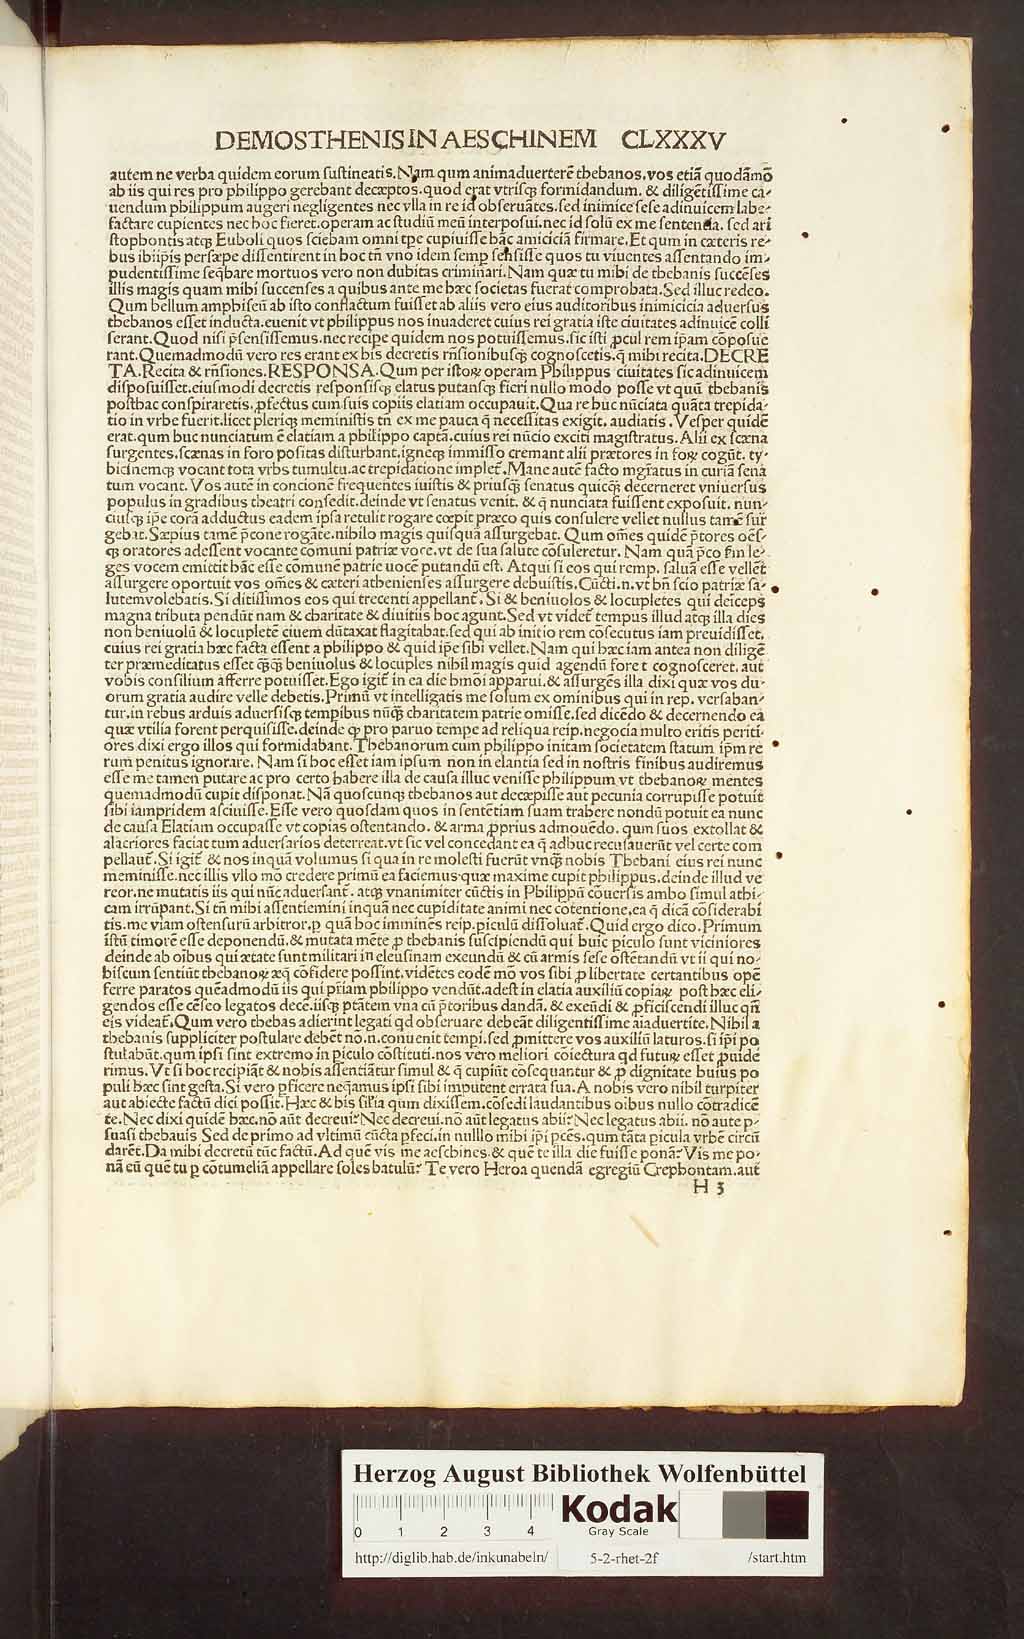 DEMOSTHENIS IN AESCHINEM CLXXXV
autem ne verba quidem eorum sustineatis. Nam qum animaduerterē thebanos, vos etiā quodāmō
ab iis qui res pro philippo gerebant decæptos. quod erat vtrisq; formidandum. & diligētissime ca-
uendum philippum augeri negligentes nec vlla in re id obseruātes. sed inimice sese adinuicem labe-
factare cupientes nec hoc fieret. operam ac studiū meū interposui. nec id solū ex me sententia. sed ari
stophontis atq; Euboli quos sciebam omni tpe cupiuisse hāc amiciciā firmare. Et qum in cæteris re-
bus ibi iīpis persæpe dissentirent in hoc tñ vno idem semp sensisse quos tu viuentes assentando im-
pudentissime seq̄bare mortuos vero non dubitas criminari. Nam quæ tu mihi de thebanis succēses
illis magis quam mihi succenses a quibus ante me hæc societas fuerat comprobata. Sed illuc redeo.
Qum bellum amphiseū ab isto conflactum fuisset ab aliis vero eius auditoribus inimicicia aduersus
thebanos esset inducta. euenit vt philippus nos inuaderet cuius rei gratia iste ciuitates adinuicē colli
serant. Quod nisi p̄sensissemus. nec recipe quidem nos potuissemus. sic isti ꝓcul rem ip̄am cōposue
rant. Quemadmodū vero res erant ex his decretis rñsionibusq; cognoscetis. q̄ mihi recita. DECRE
TA. Recita & rñsiones. RESPONSA. Qum per istoꝝ operam Philippus ciuitates sic adinuicem
disposuisset. eiusmodi decretis responsisq; elatus putansq; fieri nullo modo posse vt quū thebanis
posthac conspiraretis. ꝓfectus cum suis copiis elatiam occupauit. Qua re huc nūciata quāta trepida-
tio in vrbe fuerit. licet pleriq; meministis tñ ex me pauca q̄ necessitas exigit. audiatis. Vesper quidē
erat. qum huc nunciatum ē elatiam a philippo captā. cuius rei nūcio exciti magistratus. Alii ex scæna
surgentes. scænas in foro positas disturbant. igneq; immisso cremant alii prætores in foꝝ cogūt. ty-
bicinemq; vocant tota vrbs tumultu. ac trepidatione implet̄. Mane autē facto mg̃ratus in curiā sena
tum vocant. Vos autē in concionē frequentes iuistis & priusq̄ senatus quicq̄ decerneret vniuersus
populus in gradibus theatri consedit. deinde vt senatus venit. & q̄ nunciata fuissent exposuit. nun-
ciusq; ip̄e corā adductus eadem ipsa retulit rogare cœpit præco quis consulere vellet nullus tamē sur
gebat. Sæpius tamē p̄cone rogāte. nihilo magis quisquā assurgebat. Qum om̄es quidē p̄tores oēs-
q; oratores adessent vocante comuni patriæ voce. vt de sua salute cōsuleretur. Nam quā p̄co ẜm le-
ges vocem emittit hāc esse comunē patrie uocē putandū est. Atqui si eos qui remp. saluā esse vellēt
assurgere oportuit vos om̄es & cæteri athenienses assurgere debuistis. Cūcti. n. vt bñ scio patriæ sa-
lutem volebatis. Si ditissimos eos qui trecenti appellant̄. Si & beniuolos & locupletes qui deiceps
magna tributa pendūt nam & charitate & diuitiis hoc agunt. Sed vt videt̄ tempus illud atq; illa dies
non beniuolū & locupletē ciuem dūtaxat flagitabat. sed qui ab initio rem cōsecutus iam preuidisset.
cuius rei gratia hæc facta essent a philippo & quid ip̄e sibi vellet. Nam qui hæc iam antea non diligē
ter præmeditatus esset q̄q̄ beniuolus & locuples nihil magis quid agendū foret cognosceret. aut
vobis consilium afferre potuisset. Ego igit̄ in ea die hmōi apparui. & assurgēs illa dixi quæ vos du-
orum gratia audire velle debetis. Primū vt intelligatis me solum ex ominibus qui in rep. versaban-
tur. in rebus arduis aduersisq; tempibus nūq̄ charitatem patrie omisse. sed dicēdo & decernendo ea
quæ vtilia forent perquisisse. deinde q; pro paruo tempe ad reliqua reip. negocia multo eritis periti-
ores dixi ergo illos qui formidabant. Thebanorum cum philippo initam societatem statum ip̄m re
rum penitus ignorare. Nam si hoc esset iam ipsum non in elantia sed in nostris finibus audiremus
esse me tamen putare ac pro certo habere illa de causa illuc venisse philippum vt thebanoꝝ mentes
quemadmodū cupit disponat. Nā quoscunq; thebanos aut decæpisse aut pecunia corrupisse potuit
sibi iampridem asciuisse. Esse vero quosdam quos in sentētiam suam trahere nondū potuit ea nunc
de causa Elatiam occupasse vt copias ostentando. & arma ꝓprius admouēdo. qum suos extollat &
alacriores faciat tum aduersarios deterreat. vt sic vel concedant ea q̄ adhuc recusauerūt vel certe com
pellaut̄. Si igit̄ & nos inquā volumus si qua in re molesti fuerūt vnq̄ nobis Thebani eius rei nunc
meminisse. nec illis vllo mō credere primū ea faciemus. quæ maxime cupit philippus. deinde illud ve
reor. ne mutatis iis qui nūc aduersant̄. atq; vnanimiter cūctis in Philippū cōuersis ambo simul athi-
cam irrūpant. Si tñ mihi assentiemini inquā nec cupiditate animi nec cōtentione. ea q̄ dicā cōsiderabi
tis. me viam ostensurū arbitror. p quā hoc imminēs reip. piculū dissoluat̄. Quid ergo dico. Primum
istū timorē esse deponendū. & mutata mēte ꝓ thebanis suscipiendū qui huic piculo sunt viciniores
deinde ab oībus qui ætate sunt militari in eleusinam exeundū & cū armis sese ostētandū vt ii qui no-
biscum sentiūt thebanoꝝ æq̄ cōfidere possint. vidētes eodē mō vos sibi ꝓ libertate certantibus opē
ferre paratos quēadmodū iis qui p̄riam philippo vendūt. adest in elatia auxiliū copiaꝝ post hæc eli-
gendos esse cēseo legatos decē. iisq; p̄tātem vna cū p̄toribus dandā. & exeūdi & ꝓficiscendi illuc qñ
eis videat̄. Qum vero thebas adierint legati qd obseruare debeāt diligentissime aīaduertite. Nihil a
thebanis suppliciter postulare debēt nō. n. conuenit tempi. sed ꝓmittere vos auxiliū laturos. si ip̄i po
stulabūt. qum ipsi sint extremo in piculo cōstituti. nos vero meliori cōiectura qd futuꝝ esset ꝓuide
rimus. Vt si hoc recipiāt & nobis assentiātur simul & q̄ cupiūt cōsequantur & ꝓ dignitate huius po
puli hæc sint gesta. Si vero ꝑficere neq̄amus ipsi sibi imputent errata sua. A nobis vero nihil turpiter
aut abiecte factū dici possit. Hæc & his sīlia qum dixissem. cōsedi laudantibus oībus nullo cōtradicē
te. Nec dixi quidē hæc. nō aūt decreui? Nec decreui. nō aūt legatus abii? Nec legatus abii. nō aute p-
suasi thebauis Sed de primo ad vltimū cūcta pfeci. in nulllo mihi ip̄i pcēs. qum tāta picula vrbē circū
darēt. Da mihi decretū tūc factū. Ad quē vis me aeschines. & quē te illa die fuisse ponā? Vis me po-
nā eū quē tu p cōtumeliā appellare soles batulū? Te vero Heroa quendā egregiū Crephontam. aut
H 3
Herzog August Bibliothek Wolfenbüttel
0 1 2 3 4
Kodak
Gray Scale
http://diglib.hab.de/inkunabeln/ 5-2-rhet-2f /start.htm